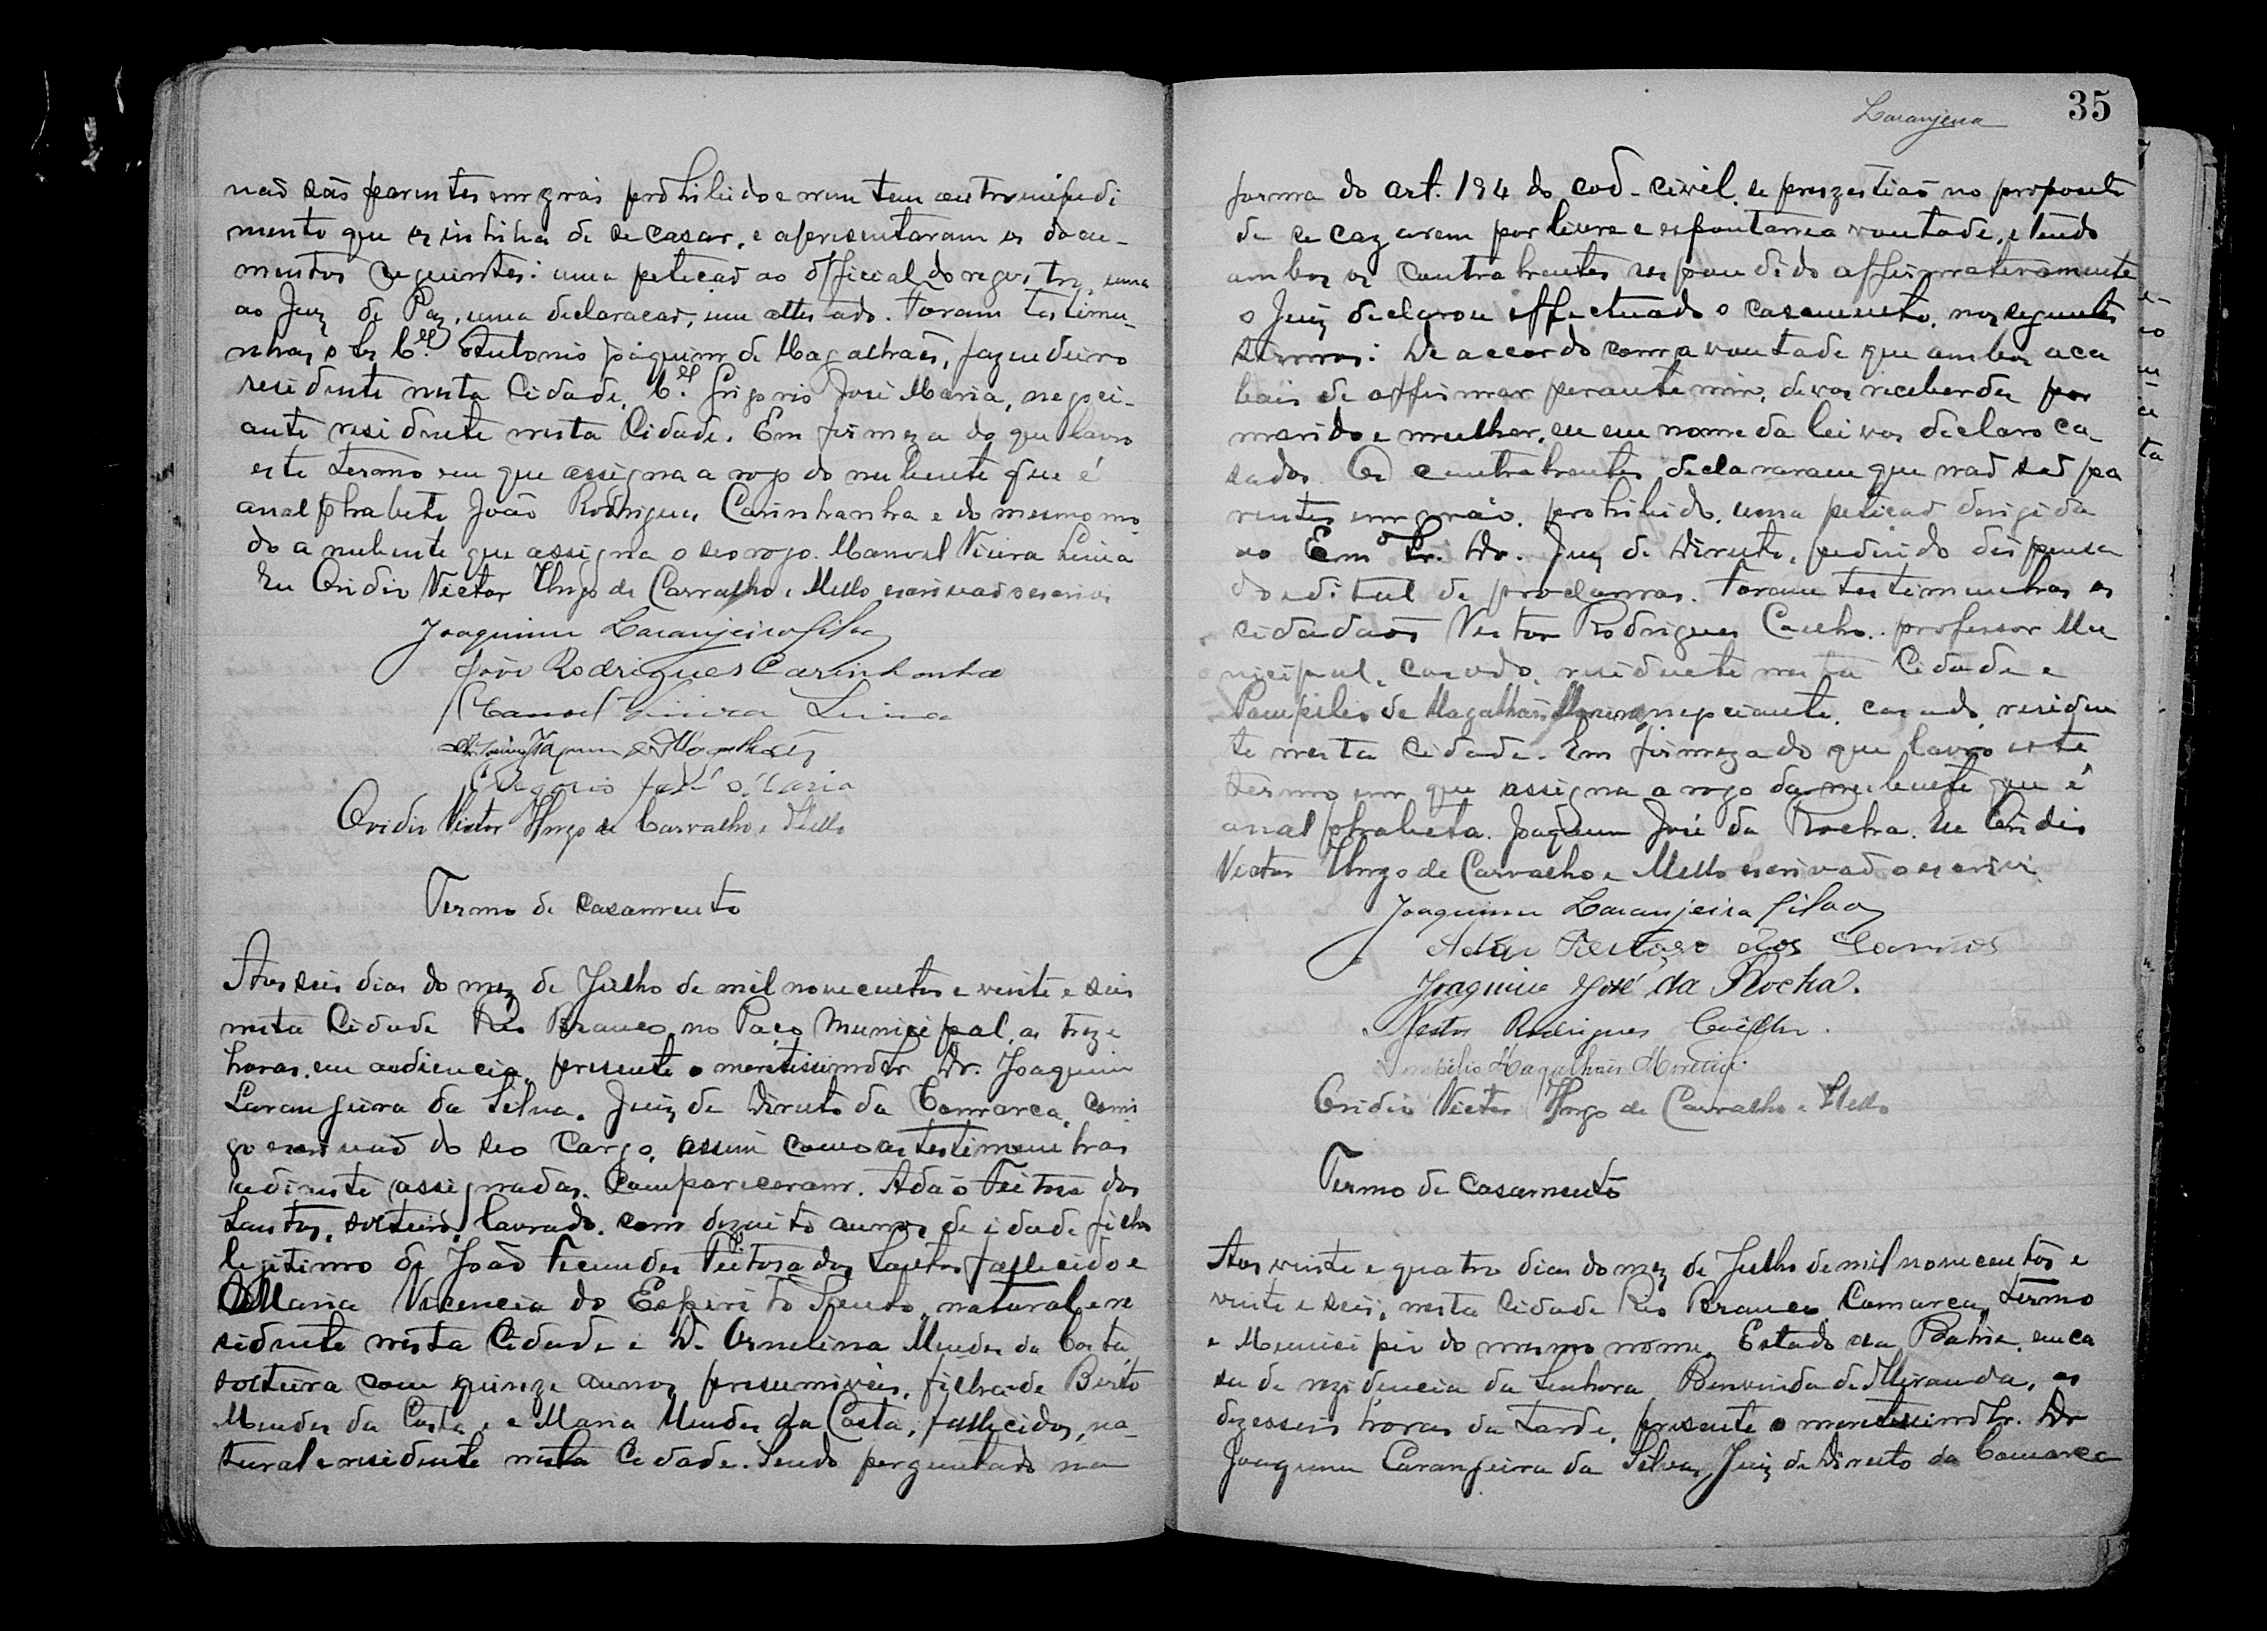 não são parentes em gráo prohibido e nem tem outro impedi
mento que os inhiba de se casar, e apresentaram os docu-
mentos seguintes: uma petição ao official do registro, uma
ao Juiz de Paz, uma declaração, um attestado. Foram testimu-
nhas o Sr Cel. Antonio Joaquim de Magalhães, fazendeiro
residente nesta Cidade, Cel. Grigorio José Maria, negoci-
ante residente nesta Cidade. Em firmeza do que lavro
este termo em que assigna a rogo do nubente que é
analphabeto João Rodrigues Carinhanha e do mesmo mo
do a nubente que assigna o seo rogo Manoel Vieira Lima
Eu Ovidio Victor Hugo de Carvalho e Mello escrivão o escrevi
Joaquim Laranjeira Silva
João Rodrigues Carinhanha
Manoel Vieira Lima
Antonio Joaquim de Magalhães
Gregorio José Maria
Ovidio Victor Hugo de Carvalho e Mello
Termo de casamento
Aos seis dias do mez de Julho de mil novecentos e vinte e seis
nesta Cidade Rio Branco, no Paço Municipal, as treze
horas, em audiencia, presente o meretissimo Sr Dr. Joaquim
Laranjeira da Silva, Juiz de Direito da Comarca, comi
go escrivão do seo cargo, assim como as testimunhas
adiante assignadas. Compareceram. Adão Feitosa dos
Santos, solteiro, lavrado, com dezoito annos de idade filho
legitimo de João Feitosa dos Santos fallecido e
Maria Vicencia do Espirito Santo, natural e re
sidente nesta Cidade e D. Ornelina Mendes da Costa,
solteira com quinze annos presumiveis, filha de Berto
Mendes da Costa, e Maria Mendes da Costa, fallecidos, na-
tural e residente nesta Cidade. Sendo perguntado na
35
Laranjeira
forma do art. 194 do cod. civil, se presestião no proposito
de se cazarem por livre e espontanea vontade, e tendo
ambos os contrahentes respondido affirmativamente
o Juiz declarou effectuado o casamento, nos seguintes
termos: De accordo com a vontade que ambos aca
bais de affirmar perante mim, de vos receberdes por
marido e mulher, eu em nome da lei vos declaro ca-
sados. Os contrahentes declararam que não são pa
rentes em gráo. prohibido. uma petição dirigida
ao Emº Sr. Dr. Juiz de Direito, pedindo dispensa
do edital de proclamas. Foram testimunhas os
cidadãos Nestor Rodrigues Coelho, professor Mu
nicipal, casado, residente nesta Cidade e
Pompilio de Magalhães Moreira, negociante, casado, residen
te nesta Cidade. Em firmeza do que lavro este
termo em que assigna a rogo da nubente que é
analphabeta. Joaquim José da Rocha. Eu Ovidio
Victor Hugo de Carvalho e Mello escrivão o escrivi.
Joaquim Laranjeira Silva
Adão Feitosa dos Santos
Joaquim José da Rocha.
Nestor Rodrigues Coelho.
Pompilio Magalhães Moreira
Ovidio Victor Hugo de Carvalho e Mello
Termo de Casamento
Aos vinte e quatro dias do mez de Julho de mil novecentos e
vinte e seis, nesta Cidade Rio Branco Comarca, Termo
e Municipio do mesmo nome, Estado da Bahia, em ca
sa de rezidencia da Senhora Benvinda de Miranda, as
dezesseis horas da tarde, presente o meretissimo Sr. Dr
Joaquim Laranjeira da Silva, Juiz de Direito da Comarca